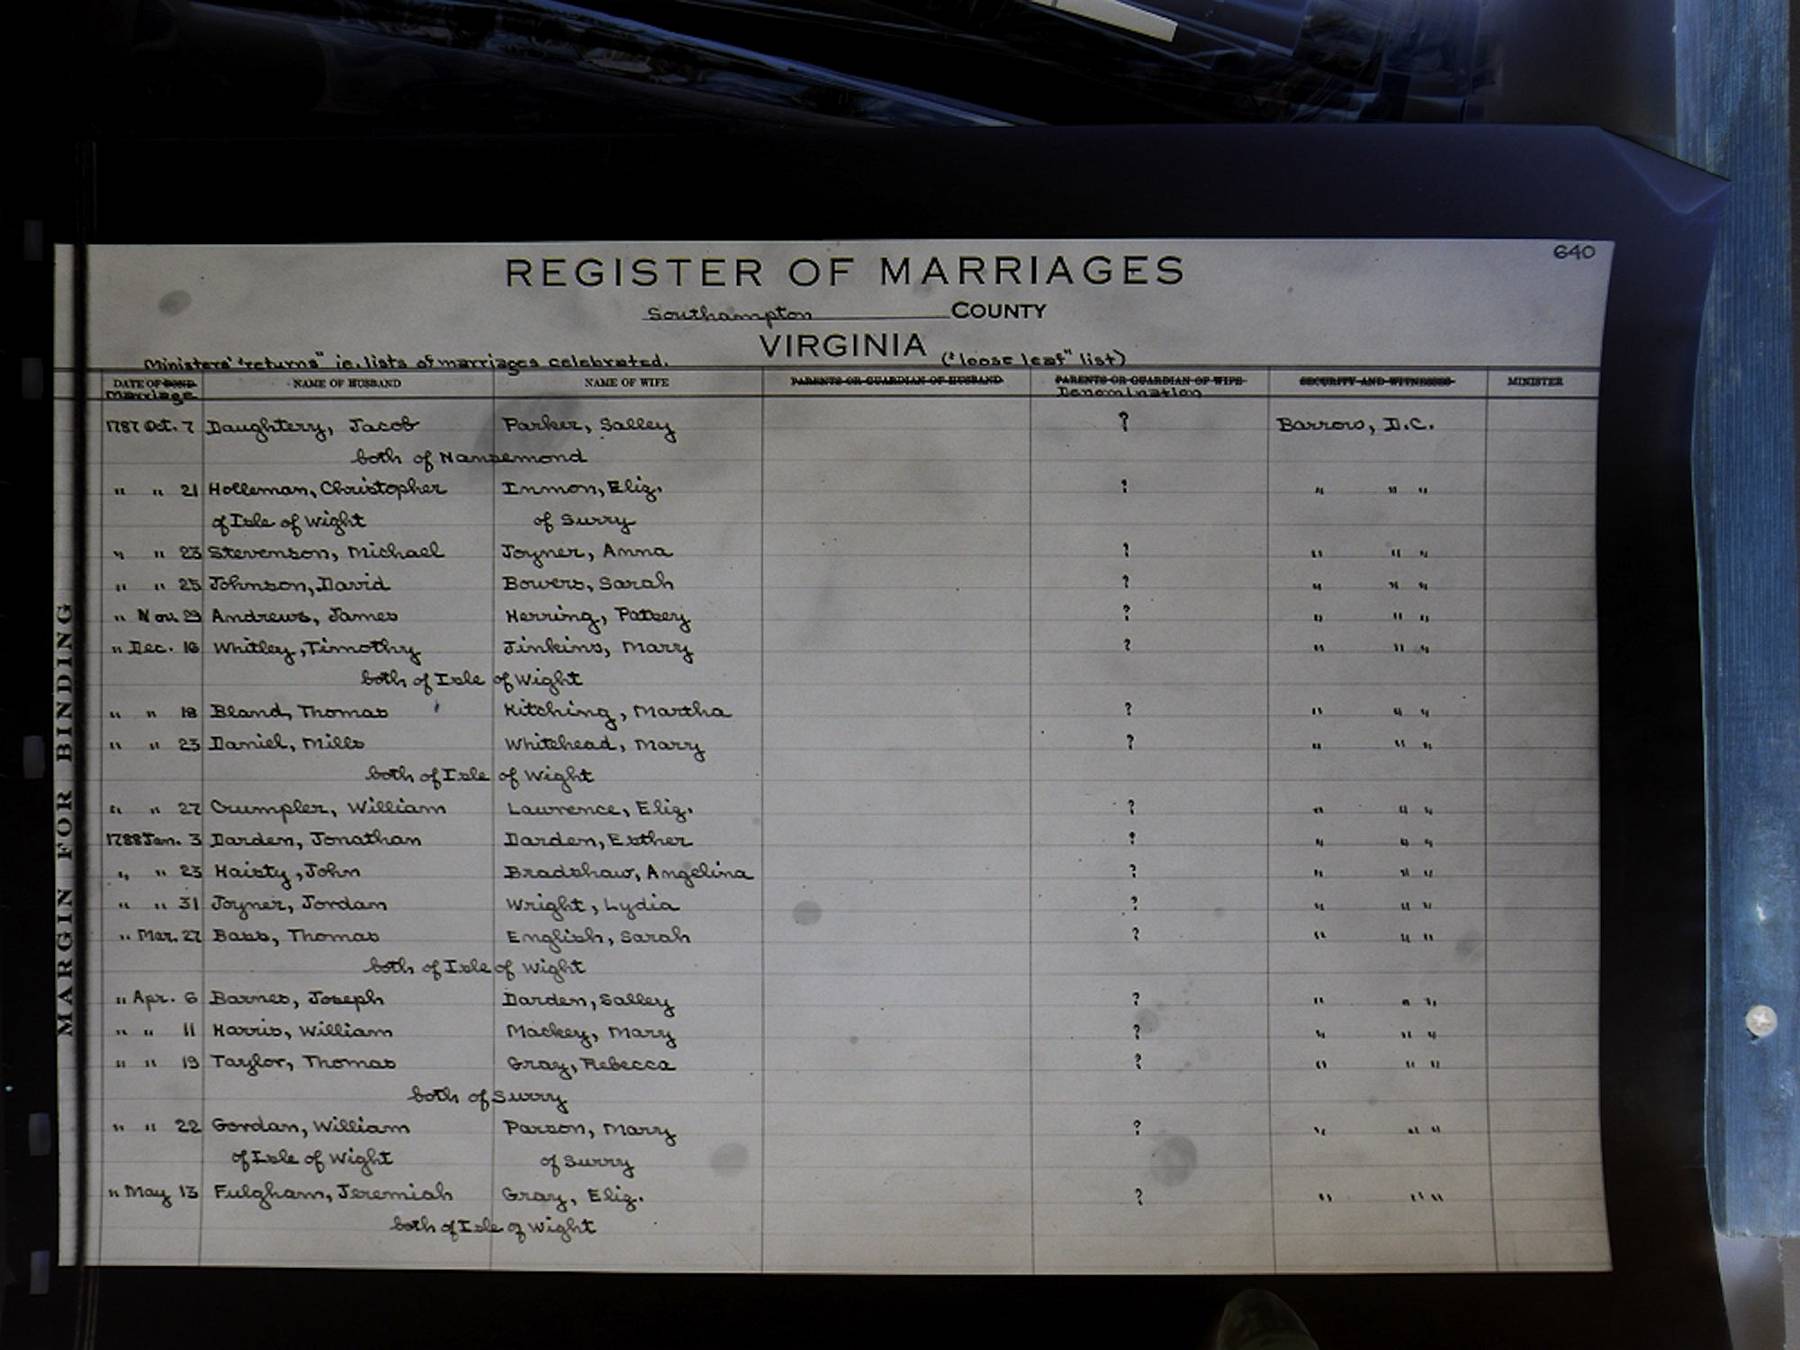 640
REGISTER OF MARRIAGES
Southampton COUNTY
VIRGINIA
Ministers' "returns" ie. lists of marriages celebrated. ("loose leaf" list)
DATE OF BOND NAME OF HUSBAND NAME OF WIFE PARENTS OR GUARDIAN OF HUSBAND PARENTS OR GUARDIAN OF WIFE SECURITY AND WITNESSES MINISTER
Marriage Denomination
1787 Oct. 7 Daughtery, Jacob Parker, Salley ? Barrow, D.C.
both of Nansemond
" " 21 Holleman, Christopher Inmon, Eliz. ? " " "
of Isle of Wight of Surry
" " 23 Stevenson, Michael Joyner, Anna ? " " "
" " 25 Johnson, David Bowers, Sarah ? " " "
" Nov. 29 Andrews, James Herring, Patsey ? " " "
" Dec. 16 Whitley, Timothy Jinkins, Mary ? " " "
both of Isle of Wight
" " 18 Bland, Thomas Kitching, Martha ? " " "
" " 23 Daniel, Mills Whitehead, Mary ? " " "
both of Isle of Wight
" " 27 Crumpler, William Lawrence, Eliz. ? " " "
1788 Jan. 3 Darden, Jonathan Darden, Esther ? " " "
" " 23 Haisty, John Bradshaw, Angelina ? " " "
" " 31 Joyner, Jordan Wright, Lydia ? " " "
" Mar. 27 Bass, Thomas English, Sarah ? " " "
both of Isle of Wight
" Apr. 6 Barnes, Joseph Darden, Salley ? " " "
" " 11 Harris, William Mackey, Mary ? " " "
" " 19 Taylor, Thomas Gray, Rebecca ? " " "
both of Surry
" " 22 Gordan, William Parson, Mary ? " " "
of Isle of Wight of Surry
" May 13 Fulgham, Jeremiah Gray, Eliz. ? " " "
both of Isle of Wight
MARGIN FOR BINDING